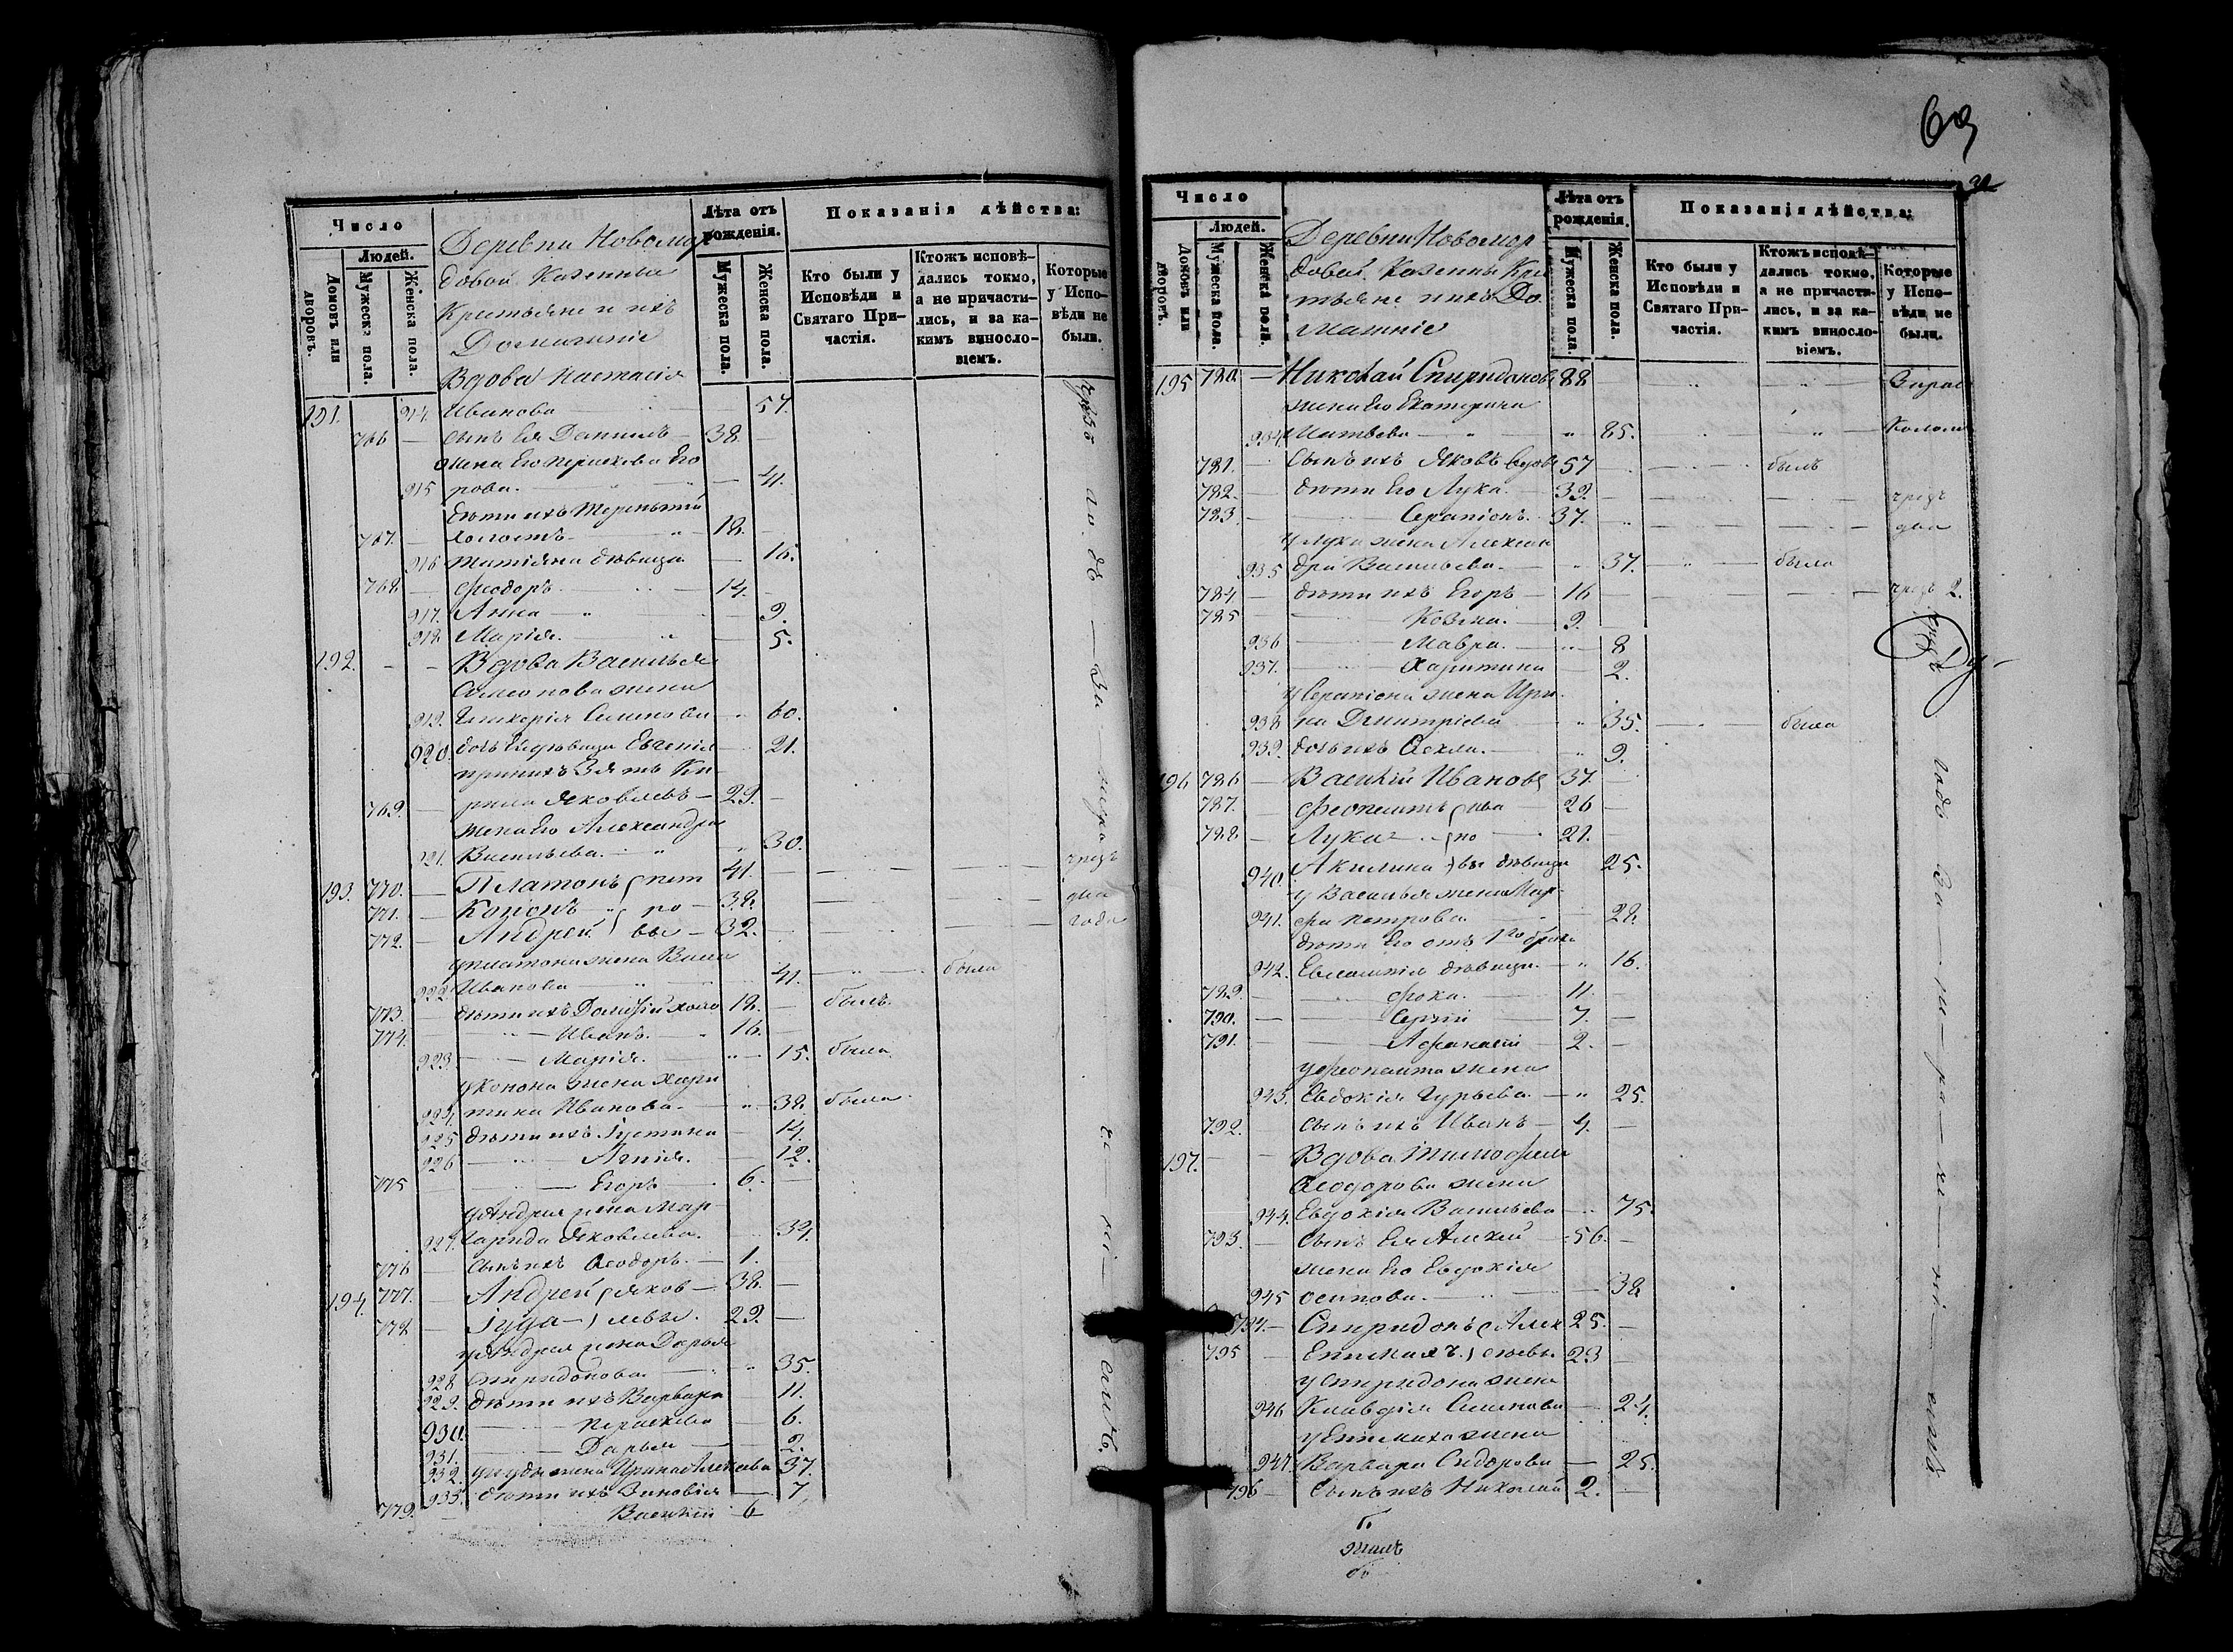 Число
Людей.
Домовъ или дворовъ.
Мужеска пола.
Женска пола.
Деревни Новомор
довой Казенные
Крестьяне и ихъ
Домашніе
Лѣта отъ рожденія.
Мужеска пола.
Женска пола.
Показанія дѣйства:
Кто были у Исповѣди и Святаго Причастія.
Ктожъ исповѣдались токмо, а не причастились, и за какимъ винословіемъ.
Которые у Исповѣди не были.
Вдова Настасія
191. 914. Иванова 57.
766 сынъ ея Даниилъ 38.
жена его Параскева Его
915 рова. 41.
дѣти ихъ Терентій
767. холостъ 18.
916 Татіяна дѣвица 16.
768 Феодоръ 14.
917. Анна 9.
918 Марія. 5.
192. Вдова Василья
Симеонова жена
919. Гликерія Семенова 60.
920. дочь ея дѣвица Евгенія 21.
принятъ Зять Ки
769. рила Яковлевъ 29.
жена его Александра
921. Васильева. 30.
193. 770. Платонъ пет 41. чрезъ
771. Кононъ ро 38. два
772. Андрей вы 32. года
у Платона жена Васса
922 Иванова 41. была
773. дѣти ихъ холо 18. былъ
774. Иванъ. 16.
923. Марія. 15. была
у Конона жена Хари
924. тина Иванова. 38. была
925 дѣти ихъ Іустина 14.
926 Агнія. 12.
775 Егоръ 6.
у Андрея жена Мар
927. гарида Яковлева. 34.
776 сынъ ихъ Ѳеодоръ. 1.
194. 777. Андрей яков 38.
778 Іуда левы. 29.
у Андрея жена Дарья
928 Спиридонова 35.
929. дѣти ихъ Варвара 11.
930. Параскева 6.
931. Дарья 2.
932. у Іуды жена Ирина Алексѣева 37.
933. дѣти ихъ Зиновія 7
779. Василій 6
69
Число
Людей.
Домовъ или дворовъ.
Мужеска пола.
Женска пола.
Деревни Новомор
довой Казенны Кре
стьяне и ихъ До
машніе
Лѣта отъ рожденія.
Мужеска пола.
Женска пола.
Показанія дѣйства:
Кто были у Исповѣди и Святаго Причастія.
Ктожъ исповѣдались токмо, а не причастились, и за какимъ винословіемъ.
Которые у Исповѣди не были.
195 780. Николай Спиридоновъ 88
жена его Екатерина
934 Матвѣева 85.
781. сынъ ихъ Яковъ вдовъ 57 былъ
782. дѣти его Лука. 39. чрезъ
783. Серапіонъ. 37. два
у Луки жена Алексан
935 дра Васильева. 37. была
784 дѣти ихъ Егоръ 16 чрезъ 2.
785 Козма. 9.
936 Мавра. 8
937. Харитина 2.
у Серапіона жена Ири
938 на Дмитріева 35. была
939. дочь ихъ Ѳекла. 9.
196 786 Василій Иванов 37.
787. Феопемптъ ива 26
788 Лука но 21.
940. Акилина вы дѣвица 25.
у Василья жена Мар
941. фа Петрова 28.
дѣти его отъ 1го брака
942. Евлампія дѣвица. 16.
789. Фока. 11.
790. Сергій 7.
791. Афанасій 2.
у Феопемпта жена
943. Евдокія Гурьева. 25.
792. сынъ ихъ Иванъ 4.
197. Вдова Тимофея
Ѳеодорова жена
944. Евдокія Васильева 75.
793. сынъ ея Алексѣй 56.
жена его Евдокія
945 Осипова. 38
794. Спиридонъ Алек 25.
795 Епимахъ. сѣевы 23
у Спиридона жена
946 Клавдія Семенова 24.
у Епимаха жена
947. Варвара Сидорова 25.
796 сынъ ихъ Николай 2.